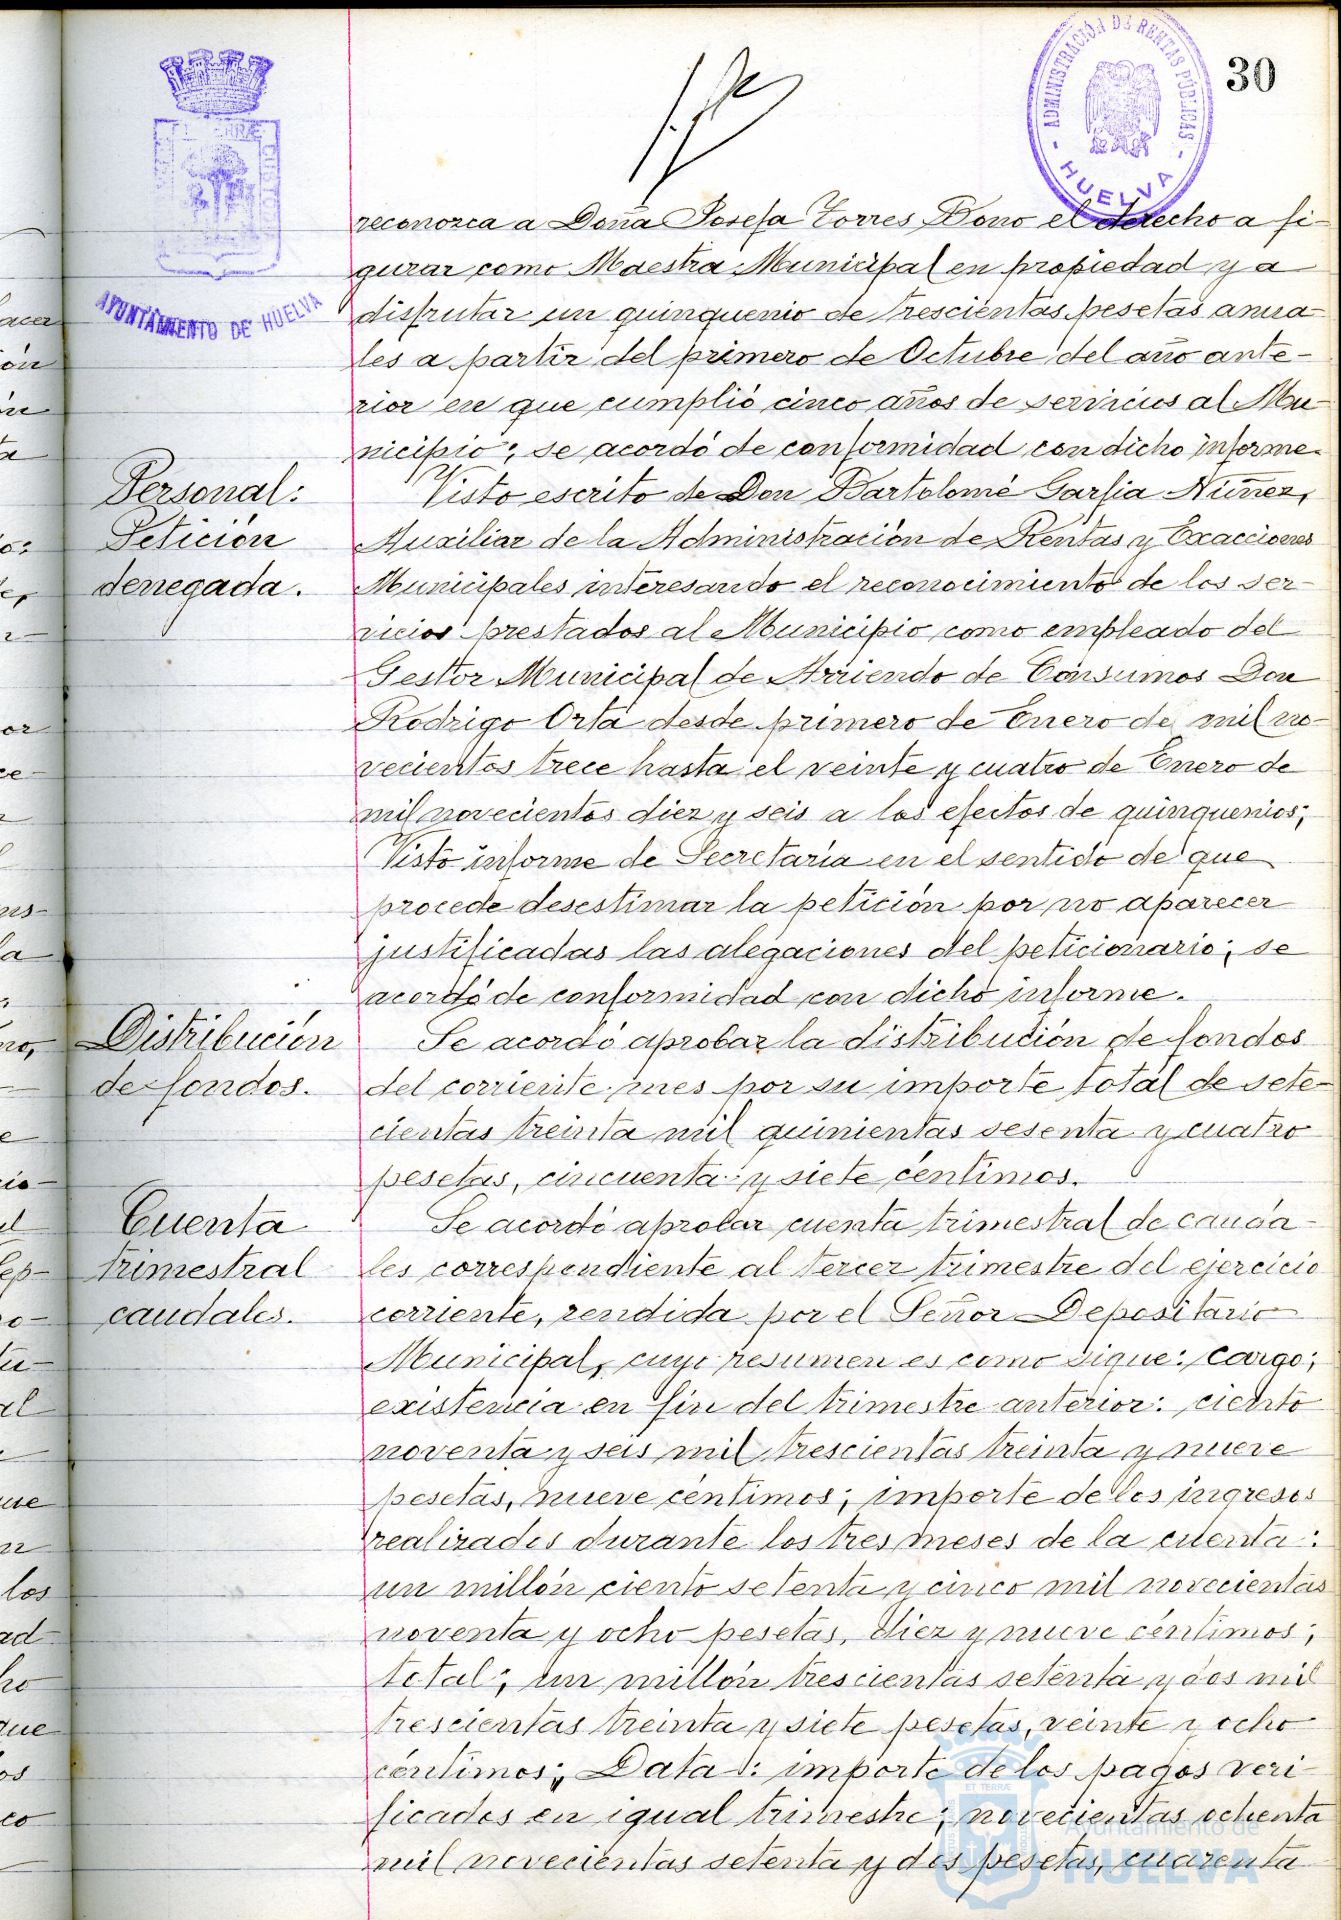 30
ADMINISTRACIÓN DE RENTAS PÚBLICAS
- HUELVA -
ET TERRÆ CUSTO
AYUNTAMIENTO DE HUELVA
reconozca a Doña Josefa Torres Bono el derecho a fi-
gurar como Maestra Municipal en propiedad y a
disfrutar un quinquenio de trescientas pesetas anua-
les a partir del primero de Octubre del año ante-
rior en que cumplió cinco años de servicios al Mu-
nicipio; se acordó de conformidad con dicho informe.
Personal:
Petición
denegada.
Visto escrito de Don Bartolomé Garfia Núñez,
Auxiliar de la Administración de Rentas y Exacciones
Municipales interesando el reconocimiento de los ser-
vicios prestados al Municipio como empleado del
Gestor Municipal de Arriendo de Cónsumos Don
Rodrigo Orta desde primero de Enero de mil no-
vecientos trece hasta el veinte y cuatro de Enero de
mil novecientos diez y seis a los efectos de quinquenios;
Visto informe de Secretaría en el sentido de que
procede desestimar la petición por no aparecer
justificadas las alegaciones del peticionario; se
acordó de conformidad con dicho informe.
Distribución
de fondos.
Se acordó aprobar la distribución de fondos
del corriente mes por su importe total de sete-
cientas treinta mil quinientas sesenta y cuatro
pesetas, cincuenta y siete céntimos.
Cuenta
trimestral
caudales.
Se acordó aprobar cuenta trimestral de cauda-
les correspondiente al tercer trimestre del ejercicio
corriente, rendida por el Señor Depositario
Municipal, cuyo resumen es como sigue: cargo;
existencia en fin del trimestre anterior: ciento
noventa y seis mil trescientas treinta y nueve
pesetas, nueve céntimos; importe de los ingresos
realizados durante los tres meses de la cuenta:
un millón ciento setenta y cinco mil novecientas
noventa y ocho pesetas, diez y nueve céntimos;
total; un millón trescientas setenta y dos mil
trescientas treinta y siete pesetas, veinte y ocho
céntimos; Data: importe de los pagos veri-
ficados en igual trimestre; novecientas ochenta
mil novecientas setenta y dos pesetas, cuarenta
ET TERRÆ
Ayuntamiento de
HUELVA